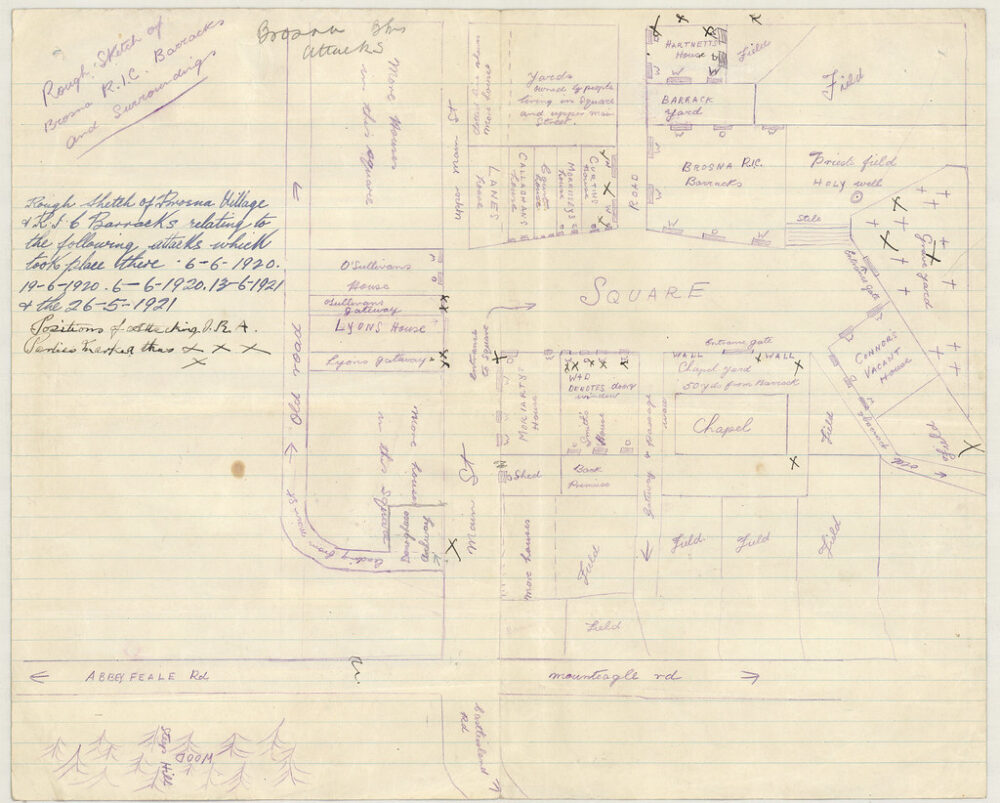 Rough Sketch of
Brosna R.I.C. Barracks
and Surrounding
Brosna
attacks
Rough Sketch of Brosna Village
& R.I.C Barracks relating to
the following attacks which
took place there 6-6-1920.
19-6-1920. 6-6-1920. 13-6-1921
& the 26-5-1921
Positions of attacking I.R.A.
Parties marked thus X X X
X
More Houses
in this square
Main St
More houses
Yards
owned by people
living on Square
and upper main
Street.
LANES
House
CALLAGHANS
House
House
House
CURTINS
House
ROAD
HARTNETTS
House
Field
Field
BARRACK
Yard
BROSNA R.I.C.
Barracks
Priests field
HOLY well
Stile
Grave yard
Entrance gate
O'Sullivans
House
O'Sullivans
gateway
LYONS House
Lyons gateway
Entrance
to Square
SQUARE
Old road
More houses
in this Square
leading from main St
gateway
Main St
MORIARTYS
House
W & D
DENOTES door &
window
Smiths
House
Shed
Back
Premises
More houses
Gateway & passage
WALL
Entrance gate
WALL
Chapel yard
50 yds from Barrack
Chapel
Field
CONNORS
VACANT
House
Old
Field
Field
Field
Field
Field
Field
ABBEYFEALE Rd
N.
mounteagle rd
Rd
WOOD
Hill